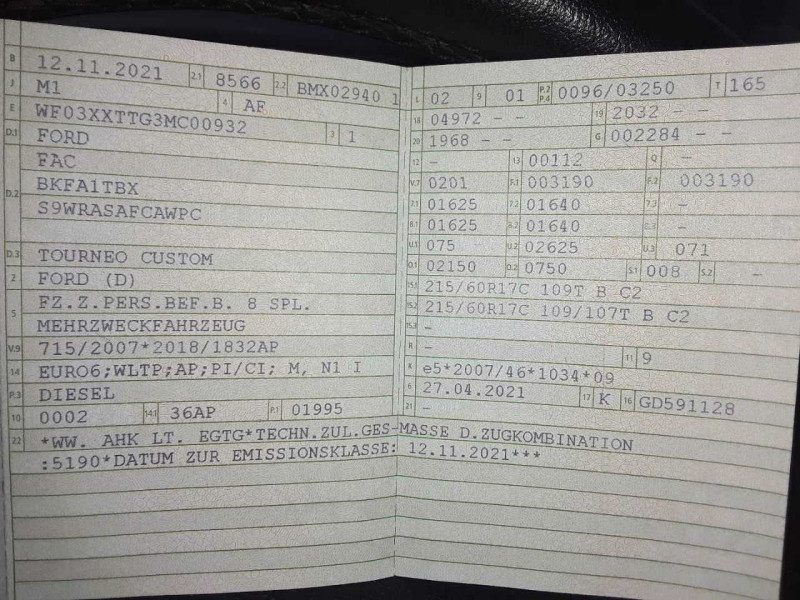 B 12.11.2021 2.1 8566 2.2 BMX02940 1
J M1 4 AF
E WF03XXTTG3MC00932 3 1
D.1 FORD
D.2 FAC
BKFA1TBX
S9WRASAFCAWPC
D.3 TOURNEO CUSTOM
2 FORD (D)
5 FZ.Z.PERS.BEF.B. 8 SPL.
MEHRZWECKFAHRZEUG
V.9 715/2007*2018/1832AP
14 EURO6;WLTP;AP;PI/CI; M, N1 I
P.3 DIESEL
10 0002 14.1 36AP P.1 01995
L 02 9 01 P.2 P.4 0096/03250 T 165
18 04972 - - 19 2032 - -
20 1968 - - G 002284 - -
12 - 13 00112 Q -
V.7 0201 F.1 003190 F.2 003190
7.1 01625 7.2 01640 7.3 -
8.1 01625 8.2 01640 8.3 -
U.1 075 U.2 02625 U.3 071
O.1 02150 O.2 0750 S.1 008 S.2 -
15.1 215/60R17C 109T B C2
15.2 215/60R17C 109/107T B C2
15.3 -
R - 11 9
K e5*2007/46*1034*09
6 27.04.2021 17 K 16 GD591128
21 -
22 *WW. AHK LT. EGTG*TECHN.ZUL.GES-MASSE D.ZUGKOMBINATION
:5190*DATUM ZUR EMISSIONSKLASSE: 12.11.2021***